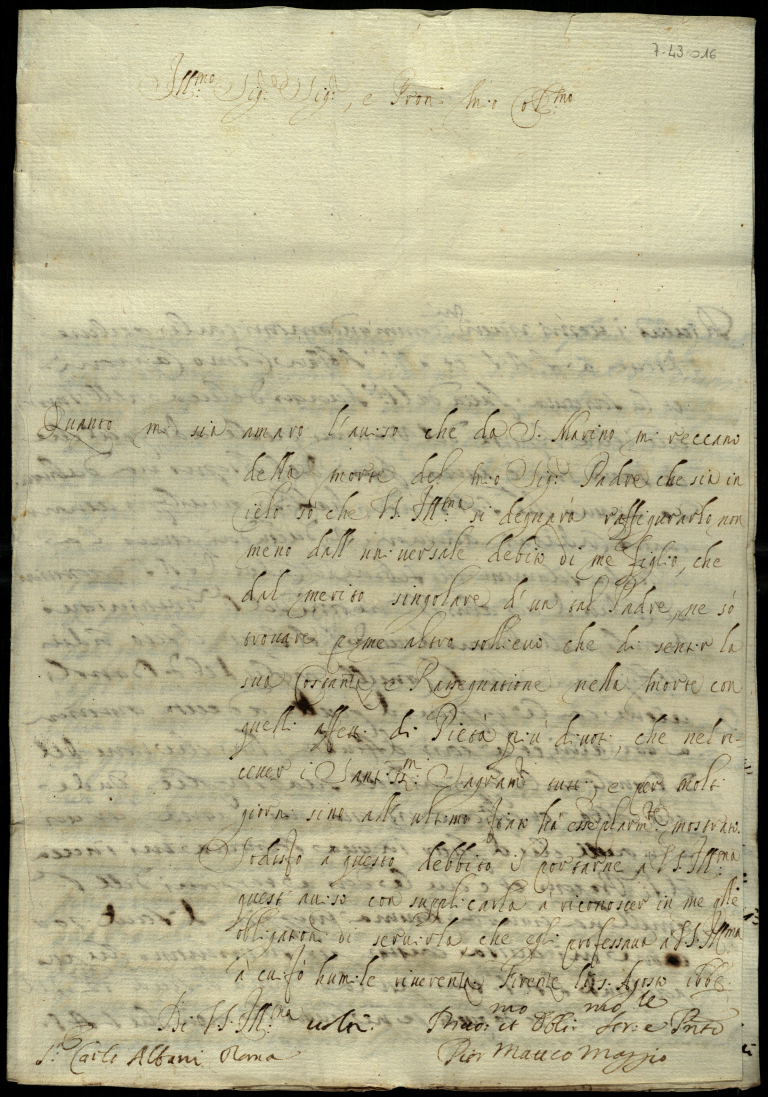 7-43-016
Ill:mo Sig:r Sig:r, e Pron: mio Col:mo
Quanto mi sia amaro l'auiso che da S. Marino mi reccano
della morte del mio Sig:r Padre che sia in
cielo sò che V.S. Ill:ma si degnarà raffigurarlo non
meno dall'uniuersale debito di me figlio, che
dal merito singolare d'un tal Padre, ne sò
trouare p me altro sollieuo che di sentir la
sua Costanza e Rassegnatione nella morte con
quelli affetti di Pietà più diuoti, che nel ri-
ceuer i Santiss:mi Sagram:ti tutti, e per molti
giorni sino all'ultimo fiato hà essemplarm:te mostrato.
Sodisfo a questo debbito di portarne a V.S. Ill:ma
quest'auiso con supplicarla a riconoscer in me q:lle
obligationi di seruirla che egli professaua a V.S. Ill:ma
a cui fò humile riuerenza. Firenze li 5. Agosto
Di V.S. Ill:ma
Deuot:mo et Obli:mo Ser:e
S:r Carlo Albani Roma
Pier Matteo Maggio